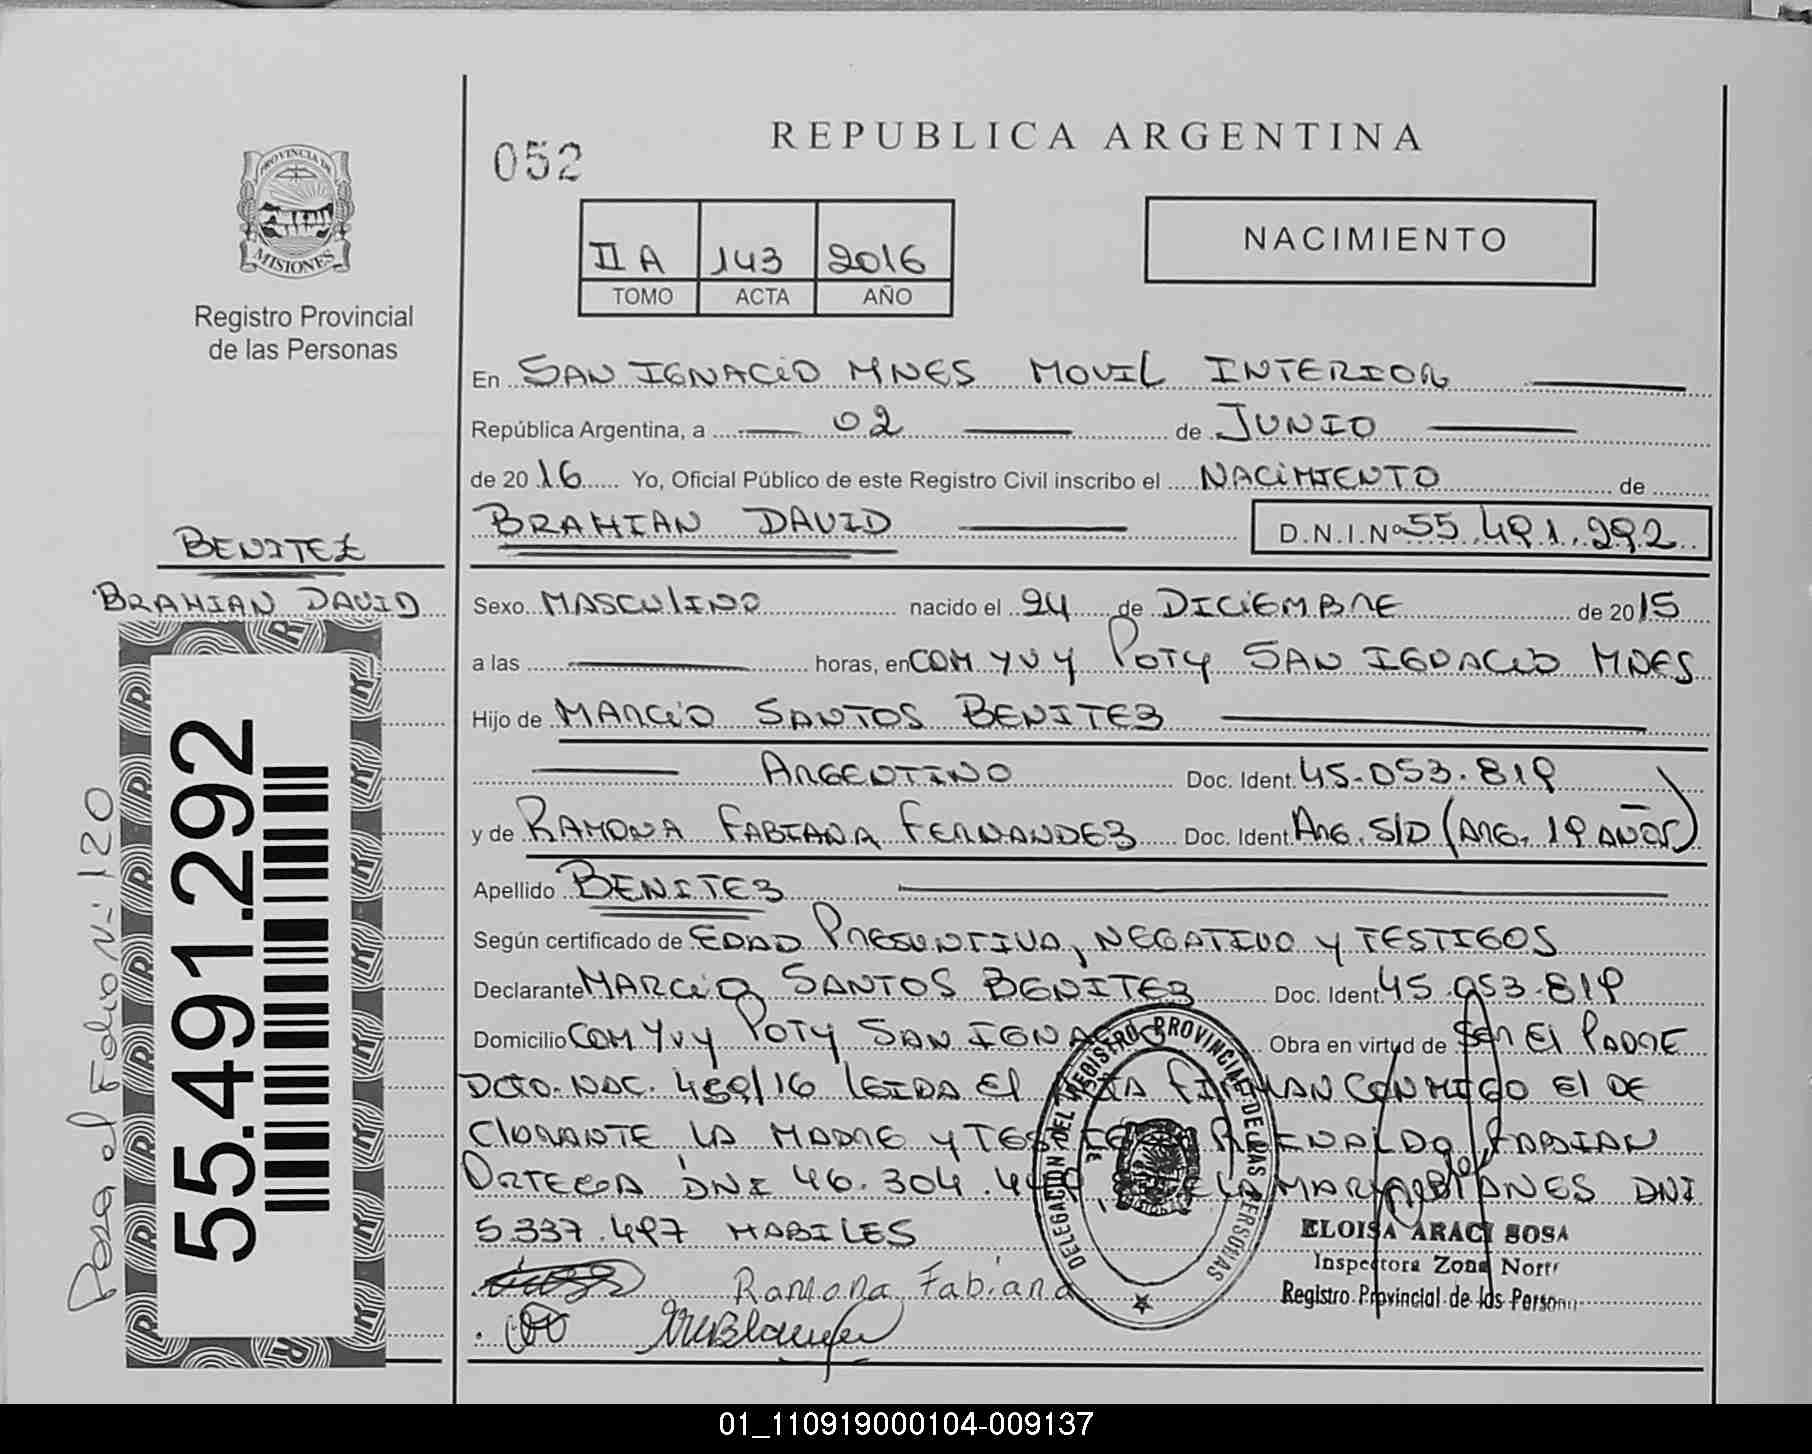 REPUBLICA ARGENTINA
052
PROVINCIA DE
MISIONES
Registro Provincial
de las Personas
II A 143 2016
TOMO ACTA AÑO
NACIMIENTO
En SAN IGNACIO MNES MOVIL INTERIOR
República Argentina, a 02 de JUNIO
de 2016 Yo, Oficial Público de este Registro Civil inscribo el NACIMIENTO de
BRAHIAN DAVID D.N.I.Nº 55.491.292
BENITEZ
BRAHIAN DAVID
Sexo MASCULINO nacido el 24 de DICIEMBRE de 2015
a las horas, en COM YVY POTY SAN IGNACIO MNES
Hijo de MARCIO SANTOS BENITEZ
ARGENTINO Doc. Ident. 45.053.819
y de RAMONA FABIANA FERNANDEZ Doc. Ident. ARG. S/D (ARG. 19 AÑOS)
Apellido BENITEZ
Según certificado de EDAD PRESUNTIVA, NEGATIVO Y TESTIGOS
Declarante MARCIO SANTOS BENITEZ Doc. Ident. 45.053.819
Domicilio COM YVY POTY SAN IGNACIO Obra en virtud de SER El PADRE
DCTO. NAC. 459/16 LEIDA El ACTA FIRMAN CONMIGO El DE
ClARANTE LA MADRE Y TESTIGOS REINALDO FABIAN
ORTEGA DNI 46.304. MARIA BLANES DNI
5.337.497 HABILES
Ramona Fabiana
DELEGACION DEL REGISTRO PROVINCIAL DE LAS PERSONAS
ELOISA ARACI SOSA
Inspectora Zona Norte
Registro Provincial de las Personas
55.491.292
Pasa al Folio Nº 120
01_110919000104-009137